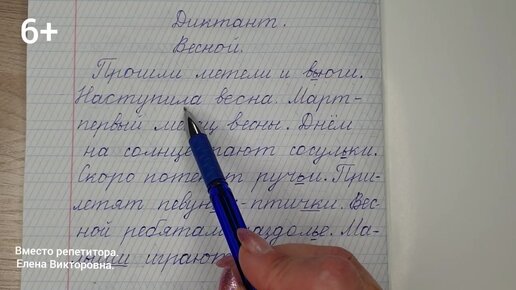 6+
Диктант.
Весной.
Прошли метели и вьюги.
Наступила весна. Март-
первый весны. Днём
на солнце тают сосульки.
Скоро ручьи. При-
летят -птички. Вес-
ной ребятам раздолье. Ма-
играют
Вместо репетитора.
Елена Викторовна.